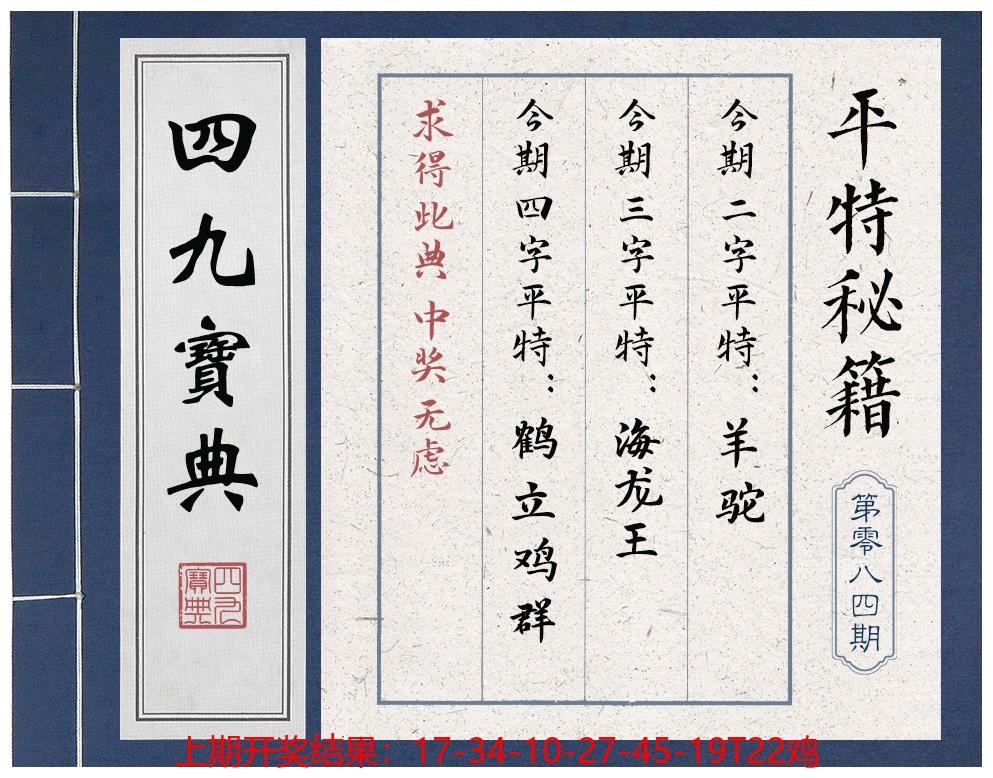 平特秘籍
第零八四期
今期二字平特：羊驼
今期三字平特：海龙王
今期四字平特：鹤立鸡群
求得此典 中奖无虑
四九寶典
四九寶典
上期开奖结果：17-34-10-27-45-19T22鸡